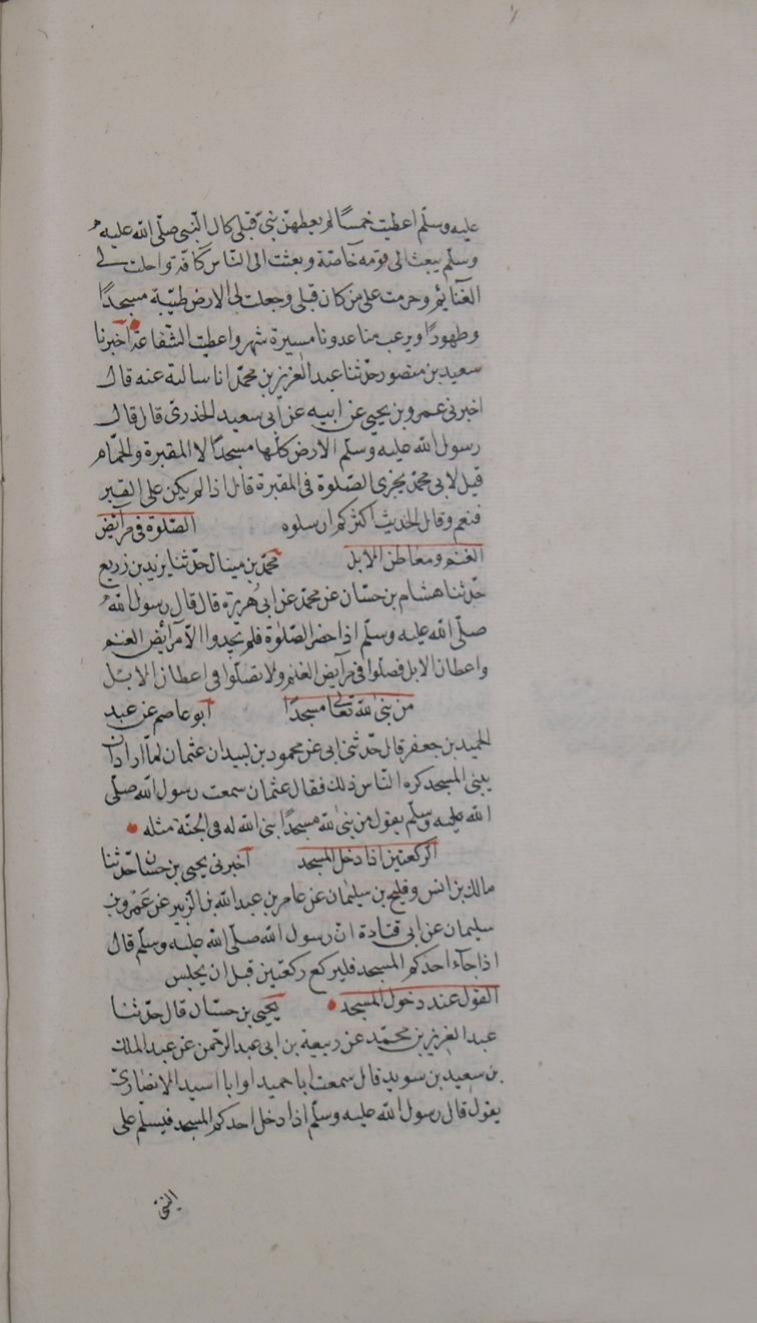 عليه وسلّم اعطيت خمسًا لم يعطهنّ نبيّ قبلي كان النّبي صلّى الله عليه
وسلّم يبعث الى قومه خاصّة وبعثت الى النّاس كافّة واحلت لي
الغنايم وحرمت على من كان قبلي وجعلت لي الارض طيّبة مسجدًا
وطهورًا ويرعب منا عدونا مسيرة شهر واعطيت الشّفاعة اخبرنا
سعيد بن منصور حدّثنا عبد العزيز بن محمّد انا سالته عنه قال
اخبرني عمرو بن يحيى عن ابيه عن ابي سعيد الخذرى قال قال
رسول الله عليه وسلّم الارض كلّها مسجدًا لا المقبرة والحمّام
قيل لابي محمّد يجزى الصّلوة في المقبرة قال اذا لم يكن على القبر
فنعم وقال الحديث اكثركم ارسلوه الصّلوة في مرآبض
الغنم ومعاطن الابل محمّد بن مينال حدّثنا يزيد بن زريع
حدّثنا هشام بن حسّان عن محمّد عن ابي هريرة قال قال رسول الله
صلّى الله عليه وسلّم اذا حضر الصّلوة فلم تجدوا الّا مرآبض الغنم
واعطان الابل فصلّوا في مرآبض الغنم ولا تصلّوا في اعطان الابل
من بنى لله تعالى مسجدًا ابو عاصم عن عبد
الحميد بن جعفر قال حدّثنى ابى عن محمود بن لبيد ان عثمان لمّا اراد ان
يبنى المسجد كره النّاس ذلك فقال عثمان سمعت رسول الله صلّى
الله عليه وسلّم يقول من بنى لله مسجدًا بنى الله له في الجنّة مثله
الركعتين اذا دخل المسجد اخبرنى يحيى بن حسّان حدّثنا
مالك بن انس وفليح بن سليمان عن عامر بن عبد الله بن الزّبير عن عمرو بن
سليمان عن ابى قتادة انّ رسول الله صلّى الله عليه وسلّم قال
اذا جآء احدكم المسجد فليركع ركعتين قبل ان يجلس
القول عند دخول المسجد يحيى بن حسّان قال حدّثنا
عبد العزيز بن محمّد عن ربيعة بن ابى عبد الرّحمن عن عبد الملك
بن سعيد بن سويد قال سمعت ابا حميد او ابا اسيد الانصارىّ
يقول قال رسول الله عليه وسلّم اذا دخل احدكم المسجد فيسلّم على
النبى